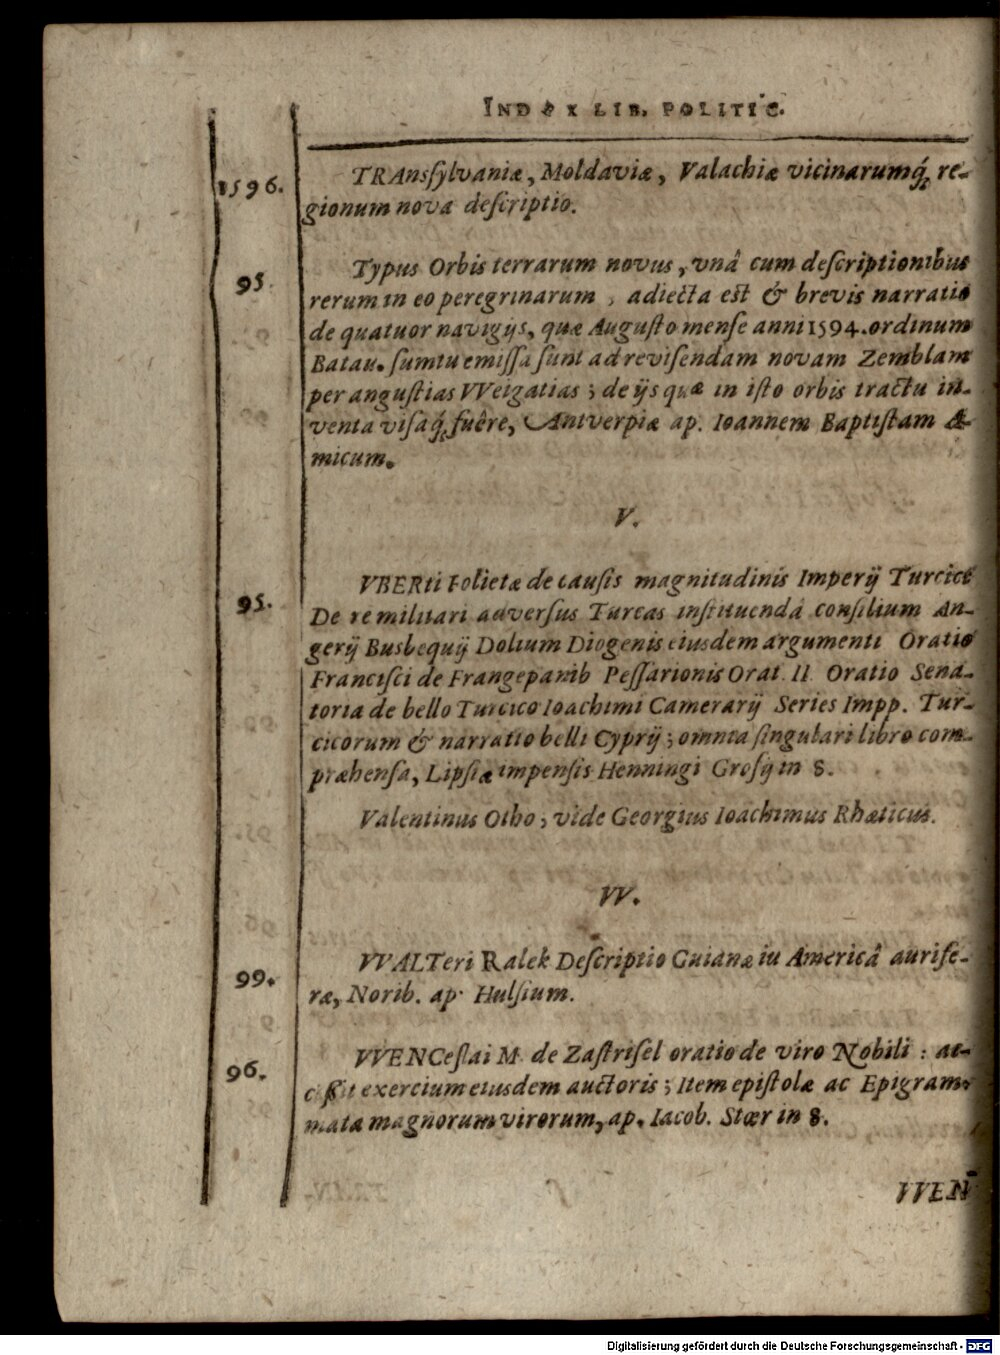 INDEX LIB. POLITIC.
1596. TRAnsſylvaniæ, Moldaviæ, Valachiæ vicinarumq́; re-
gionum nova deſcriptio.
95. Typus Orbis terrarum novus, vnâ cum deſcriptionibus
rerum in eo peregrinarum, adiecta est & brevis narratio
de quatuor navigijs, quæ Auguſto menſe anni 1594. ordinum
Batau. ſumtu emiſſa ſunt ad reviſendam novam Zemblam
per anguſtias VVeigatias; de ijs quæ in iſto orbis tractu in-
venta viſaq́; fuêre, Antverpiæ ap. Ioannem Baptiſtam A-
micum.
V.
95. VBERti Folietæ de cauſis magnitudinis Imperij Turcici
De re militari adverſus Turcas inſtituendâ conſilium An-
gerij Busbequij Dolium Diogenis eiusdem argumenti Oratio
Franciſci de Frangepanib Peſſarionis Orat. II. Oratio Sena-
toria de bello Turcico Ioachimi Camerarij Series Impp. Tur-
cicorum & narratio belli Cyprij; omnia ſingulari libro com-
præhenſa, Lipſiæ impenſis Henningi Groſij in 8.
Valentinus Otho; vide Georgius Ioachimus Rhæticus.
VV.
99. VVALTeri Ralek Deſcriptio Guianæ iu Americâ aurife-
ræ, Norib. ap. Hulſium.
96. VVENCeſlai M. de Zaſtriſel oratio de viro Nobili: ac-
ceſſit exercium eiusdem auctoris; Item epiſtolæ ac Epigram-
mata magnorum virorum, ap. Iacob. Stœr in 8.
VVEN
Digitalisierung gefördert durch die Deutsche Forschungsgemeinschaft - DFG